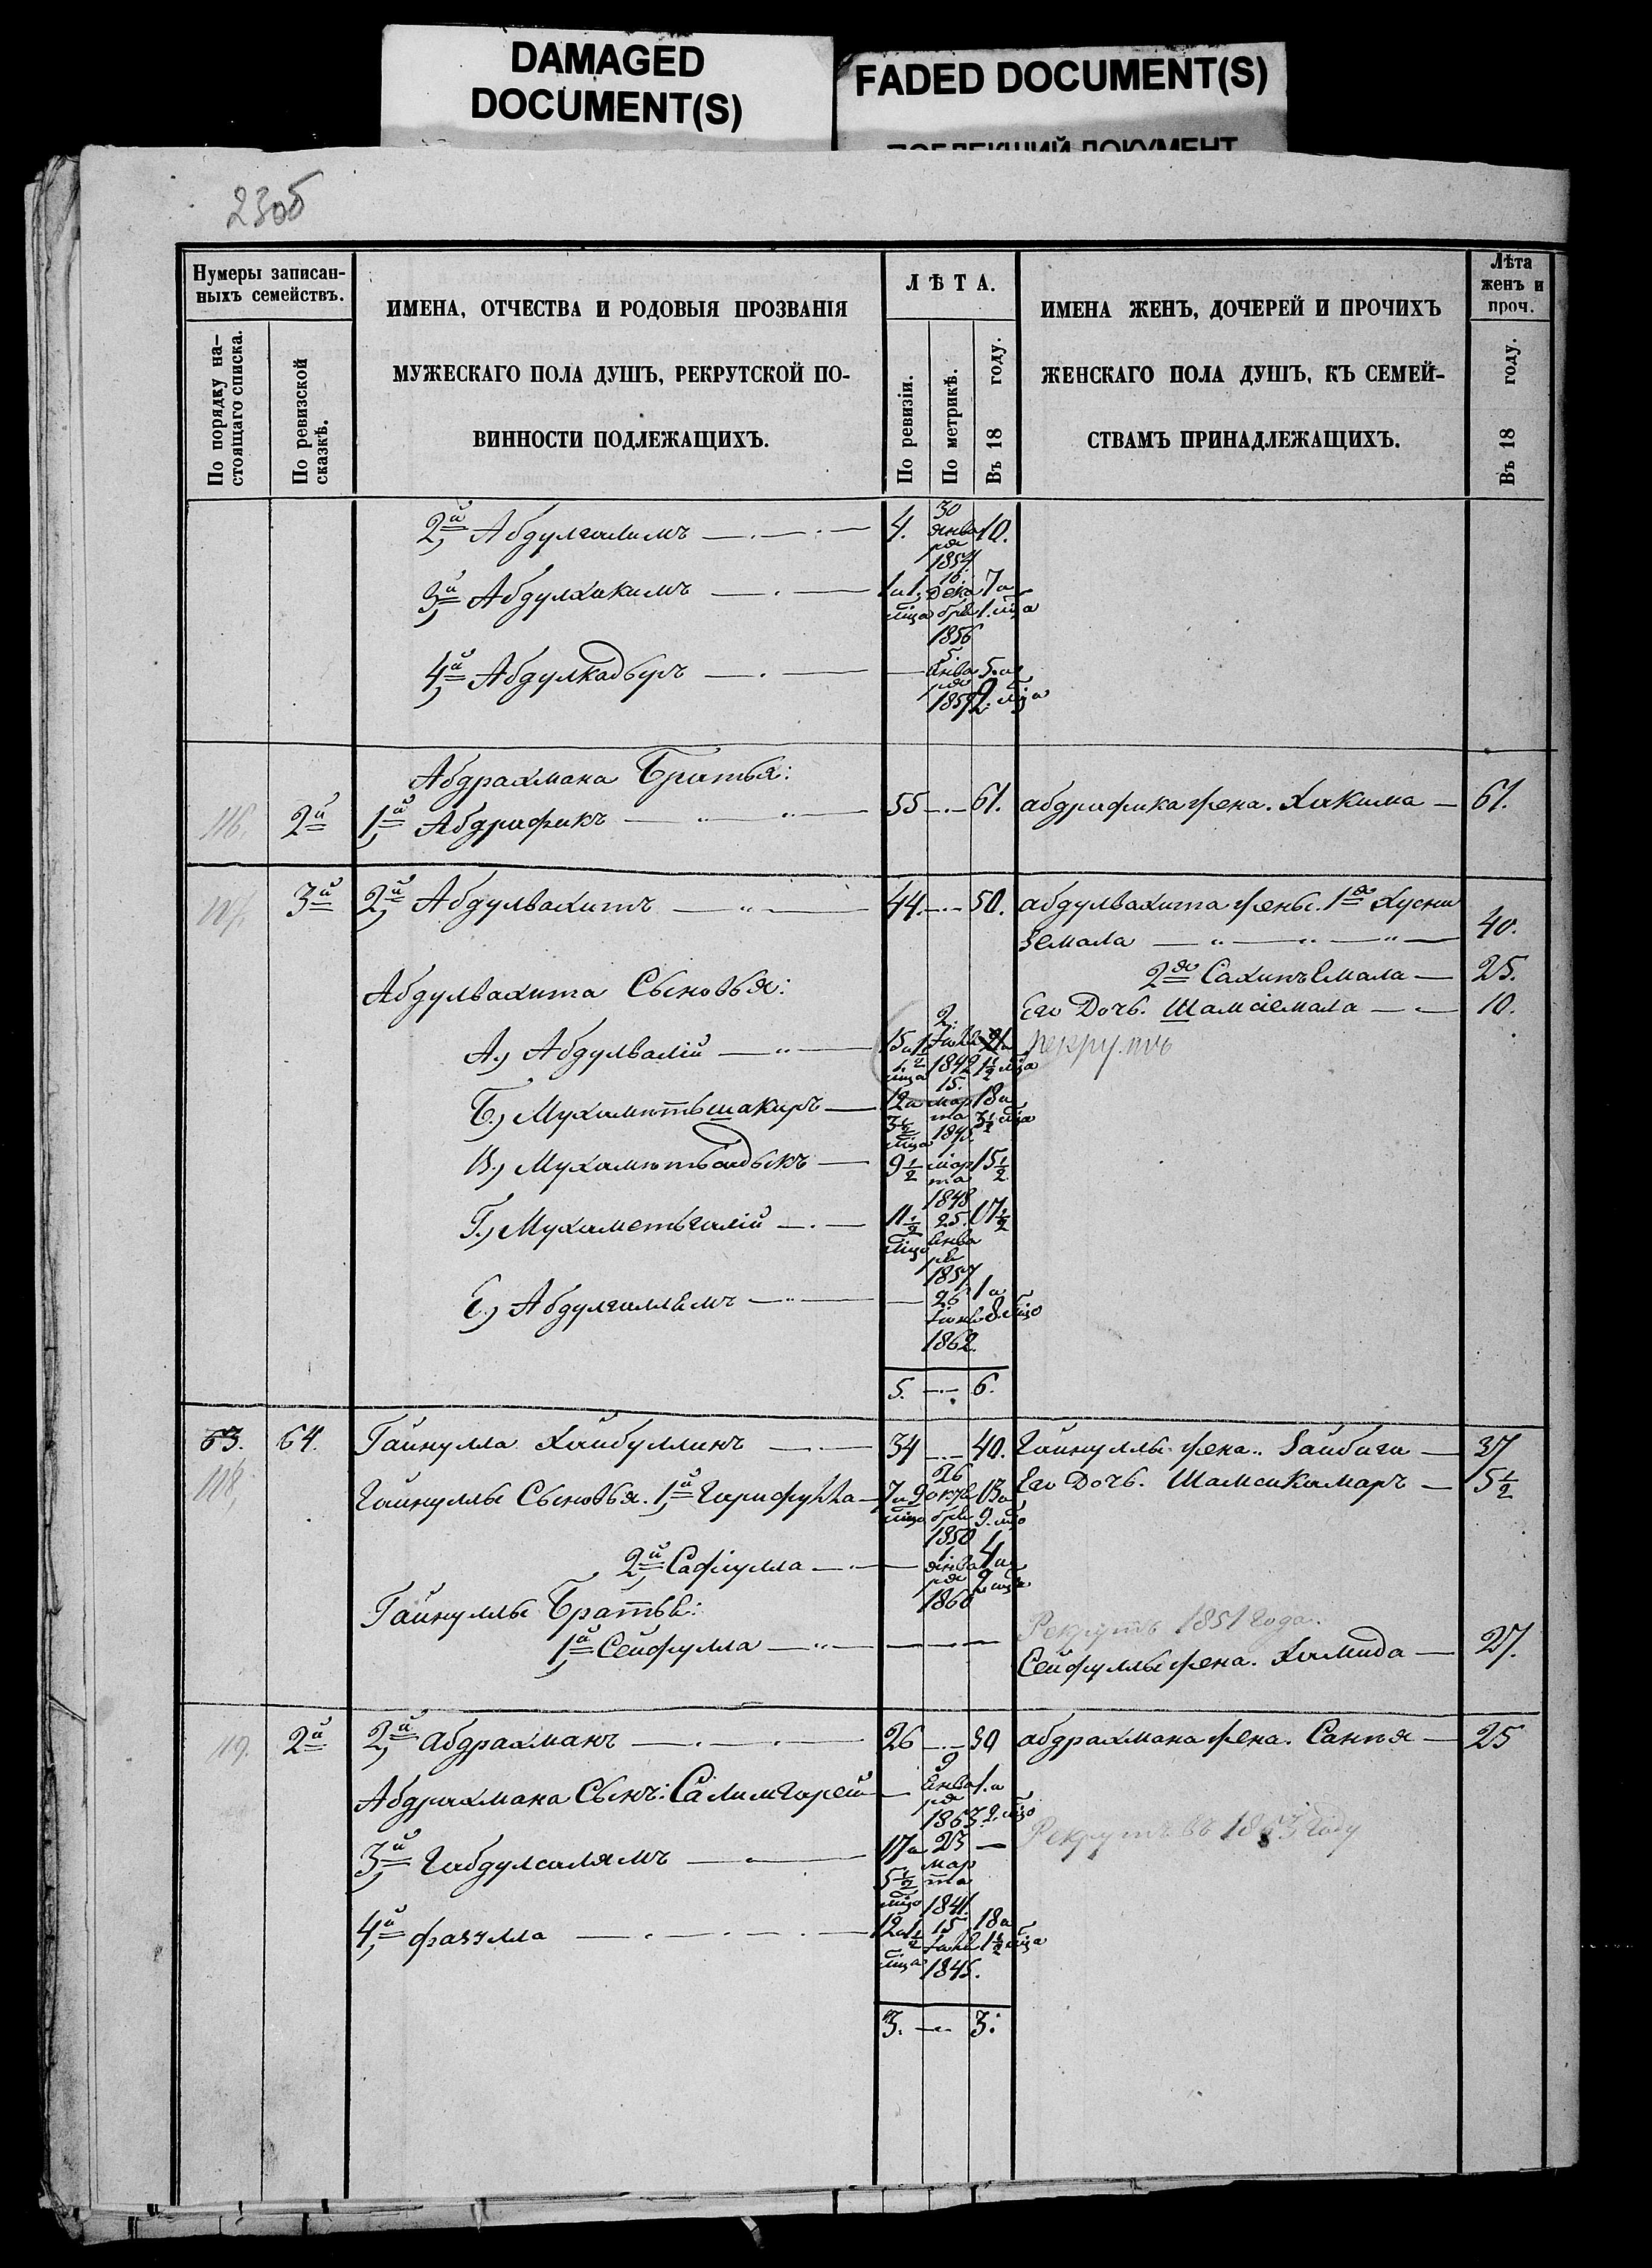 DAMAGED
DOCUMENT(S)
FADED DOCUMENT(S)
ПОБЛЕКШИЙ ДОКУМЕНТ
23об
Нумеры записан-
ныхъ семействъ.
По порядку на-
стоящаго списка.
По ревизской
сказкѣ.
ИМЕНА, ОТЧЕСТВА И РОДОВЫЯ ПРОЗВАНІЯ
МУЖЕСКАГО ПОЛА ДУШЪ, РЕКРУТСКОЙ ПО-
ВИННОСТИ ПОДЛЕЖАЩИХЪ.
ЛѢТА.
По ревизіи.
По метрикѣ.
Въ 18 году.
ИМЕНА ЖЕНЪ, ДОЧЕРЕЙ И ПРОЧИХЪ
ЖЕНСКАГО ПОЛА ДУШЪ, КЪ СЕМЕЙ-
СТВАМЪ ПРИНАДЛЕЖАЩИХЪ.
Лѣта
женъ и
проч.
Въ 18 году.
2й Абдулгалимъ 4. 30 января 1854 10.
3й Абдулхакимъ 1 и 1 мца 16. декабря 1856 7 и 1. мца
4й Абдулкадыръ — 5. января 1859 5. и 2. мца
Абдрахмана Братья:
116. 2й 1й Абдрафикъ 55 — 61. абдрафика жена. Хакима 61.
117. 3й 2й Абдулвахитъ 44. — 50. абдулвахита жены. 1я Хусни
земала 40.
2я Сахипъемала 25.
Абдулвахита Сыновья:
Его Дочь. Шамсіемала 10.
А.) Абдулвалій 15 и 1 1/2 мца 2. 1842 21 и 1 1/2 мца рекрутъ
Б.) Мухаметьшакиръ 12 и 3 1/2 мца 15. марта 1845. 18 и 3 1/2 мца
В.) Мухаметьсадыкъ 9 1/2 1. марта 1848 15 1/2
Г.) Мухаметьгалій 11 1/2 мца 25. января 1857 17 1/2
Е.) Абдулгаллямъ — 26 1862. 1 и 8. мца
5. — 6.
63. 64. Гайнулла Хайбуллинъ 34 — 40. Гайнуллы жена. Зайбиги 37
118, Гайнуллы Сыновья. 1й Гарифулла 7 и 9 мца 26 октября 1850 13 и 9. мца Его Дочь. Шамсикамаръ 5 1/2
2й Сафіулла — 1 января 1860 4 и 2 мца
Гайнуллы Братья:
Рекрутъ 1851 года.
1й Сейфулла
Сейфуллы жена. Хамида 27.
119. 2й 2й абдрахманъ 26 — 30 абдрахмана жена. Сания 25
Абдрахмана Сынъ: Салимгарей — 9 января 1863. 1. и 2. мца
3й Габдулсалямъ 17 и 5 1/2 мца 23 марта 1841. — Рекрутъ въ 1863 году
4й Фазулла 12 и 1 1/2 мца 15 1845. 18 и 1 1/2 мца
3. — 3.